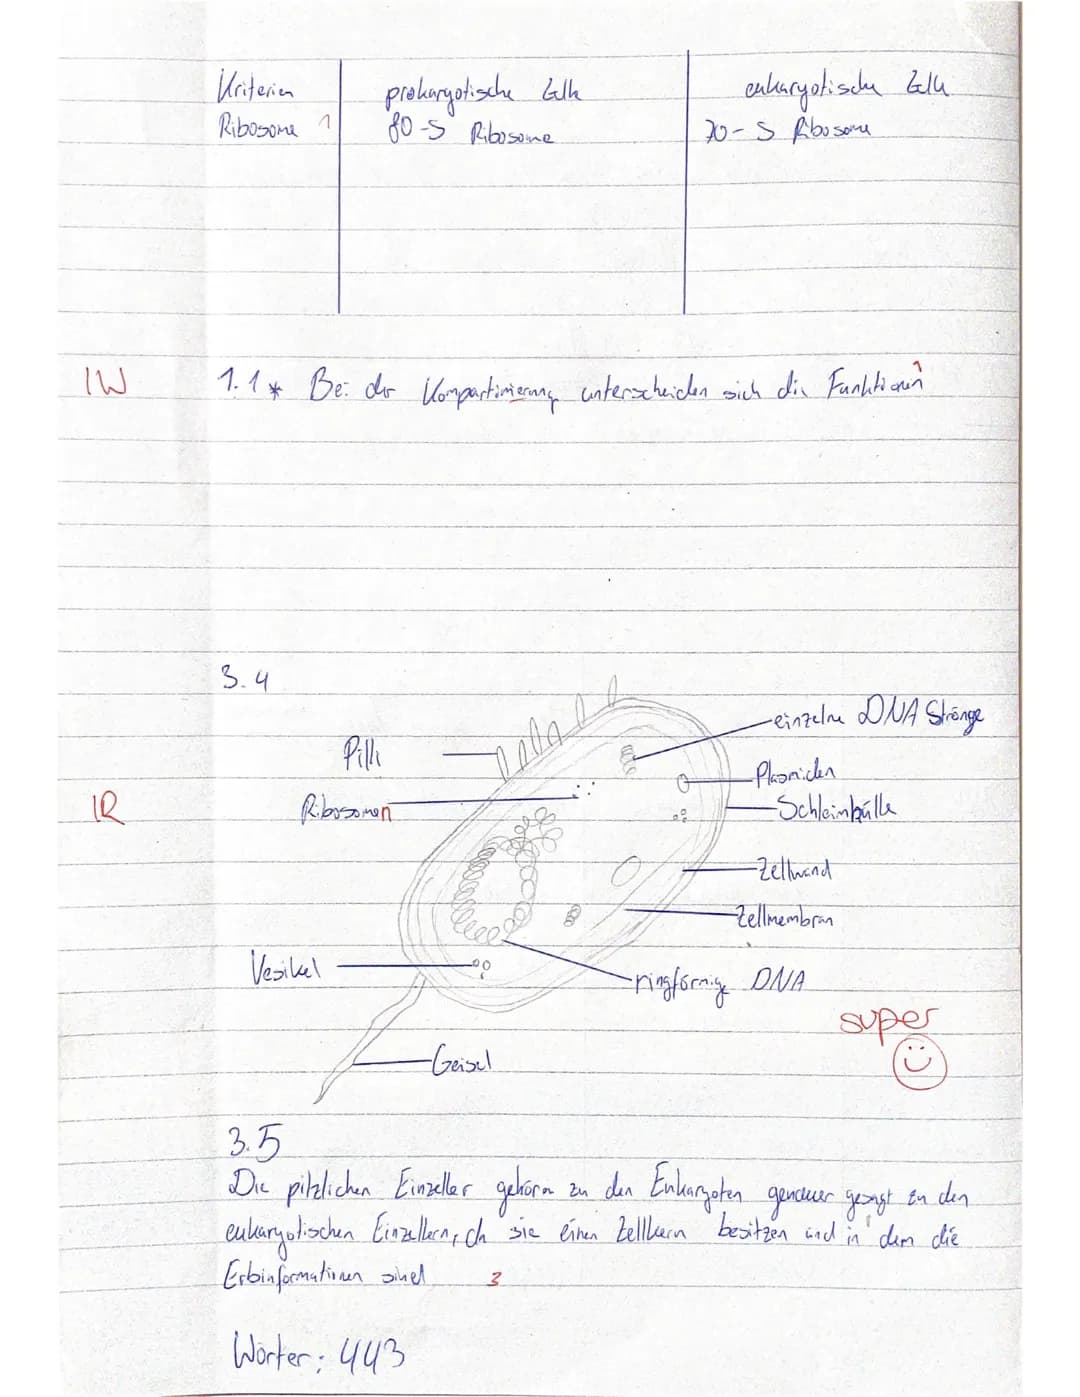 Kriterien prokaryotische Zelle eukaryotische Zelle
Ribosome 1 80-S Ribosome 70-S Ribosome
IW 1.1* Bei der Kompartimierung unterscheiden sich die Funktionen 1
3.4
einzelne DNA Stränge
Pilli
Plasmiden
IR Ribosomen
Schleimhülle
Zellwand
Zellmembran
Vesikel
ringförmige DNA
super
Geisel
3.5
Die pilzlichen Einzeller gehören zu den Eukaryoten genauer gesagt zu den
eukaryotischen Einzellern, da sie einen Zellkern besitzen und in dem die
Erbinformationen sind 3
Wörter: 443